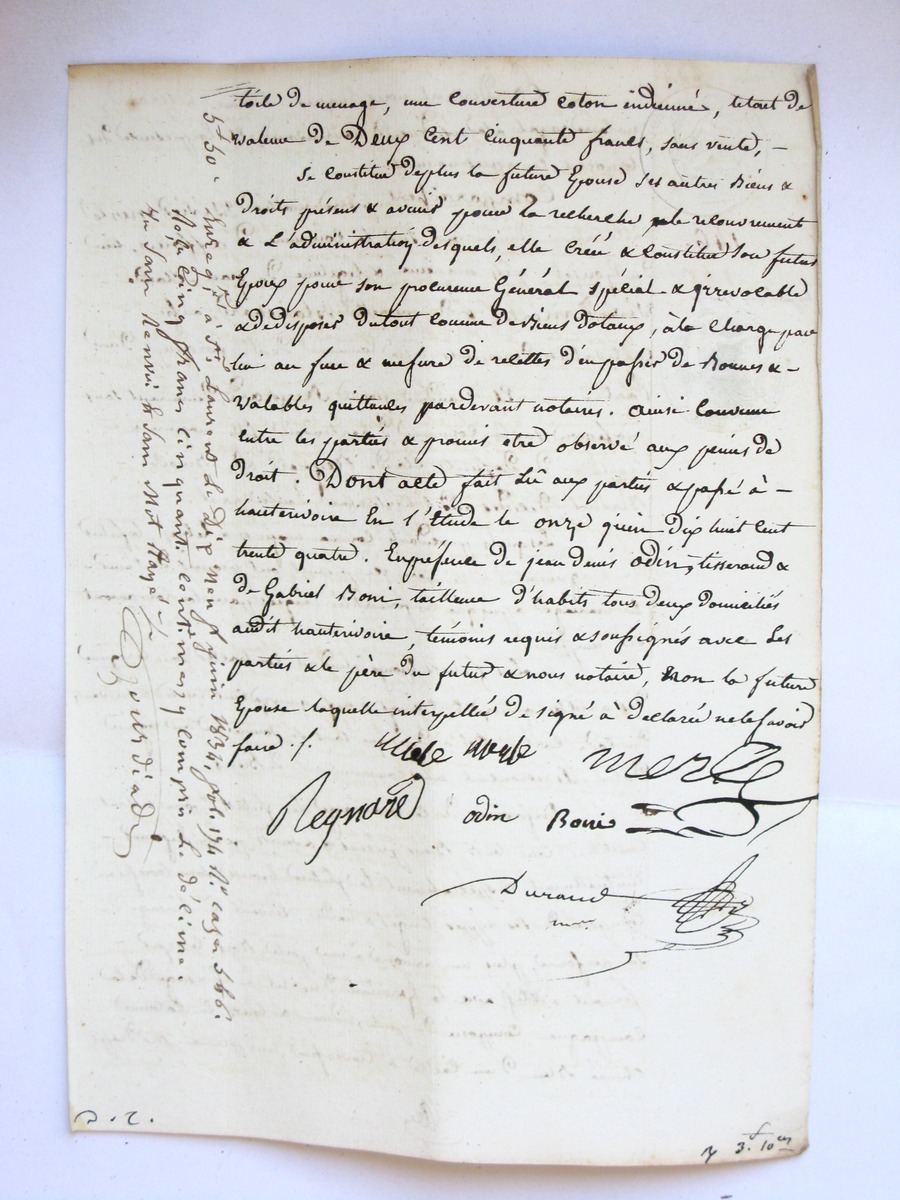 toile de menage, une couverture coton indienné, letout de
valeur de Deux Cent Cinquante francs, sans vente, -
Se Constitue deplus la future Epouse Ses autres Biens &
Droits présens & avenir pour la recherche, le recouvrement
& L'administration desquels, elle Créé & Constitue Son futur
Epoux pour son procureur Général Spécial & irrévocable
& de disposer du tout Comme de Biens dotaux, à la Charge par
lui au fur & mesure de recettes d'en passer de Bonnes & -
valables quittances pardevant notaires. ainsi Convenu
entre les parties & promis etre observé aux peines de
droit. Dont acte fait Lû aux parties & passé à -
hauterivoire En l'Etude le onze juin Dix huit Cent
trente quatre. En présence de jean denis odin, tisserand &
de Gabriel Boni, tailleur d'habits tous deux domiciliés
audit hauterivoire, témoins requis & soussignés avec Les
parties & le père du futur & nous notaire, Non la future
Epouse laquelle interpellée de signé à déclarée ne le Savoir
faire ./.
merle
Regnard
odin
Boni
Durand
nre
5f 50c
Enregté à St Laurent Le Dix neuf juin 1834, fol. 174 Ro case
Reçu Cinq francs Cinquante Centimes y compris Le décime.
3f. 10ces